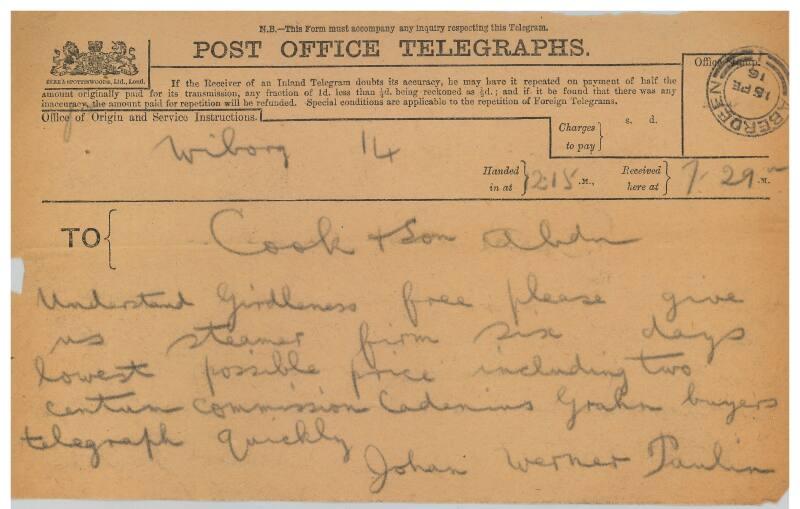 N.B.—This Form must accompany any inquiry respecting this Telegram.
POST OFFICE TELEGRAPHS.
If the Receiver of an Inland Telegram doubts its accuracy, he may have it repeated on payment of half the
amount originally paid for its transmission, any fraction of 1d. less than ½d. being reckoned as ½d.; and if it be found that there was any
inaccuracy, the amount paid for repetition will be refunded. Special conditions are applicable to the repetition of Foreign Telegrams.
Office Stamp.
ABERDEEN
15 FE
16
Office of Origin and Service Instructions.
Charges to pay
s. d.
Wiborg 14
Handed in at 2.15 .M.,
Received here at 7.29 .M.
TO Cook & Son Abdn
Understand Girdleness free please give
us steamer firm six days
lowest possible price including two
centum commission Cadenius Grahn buyers
telegraph quickly
Johan Werner Paulin